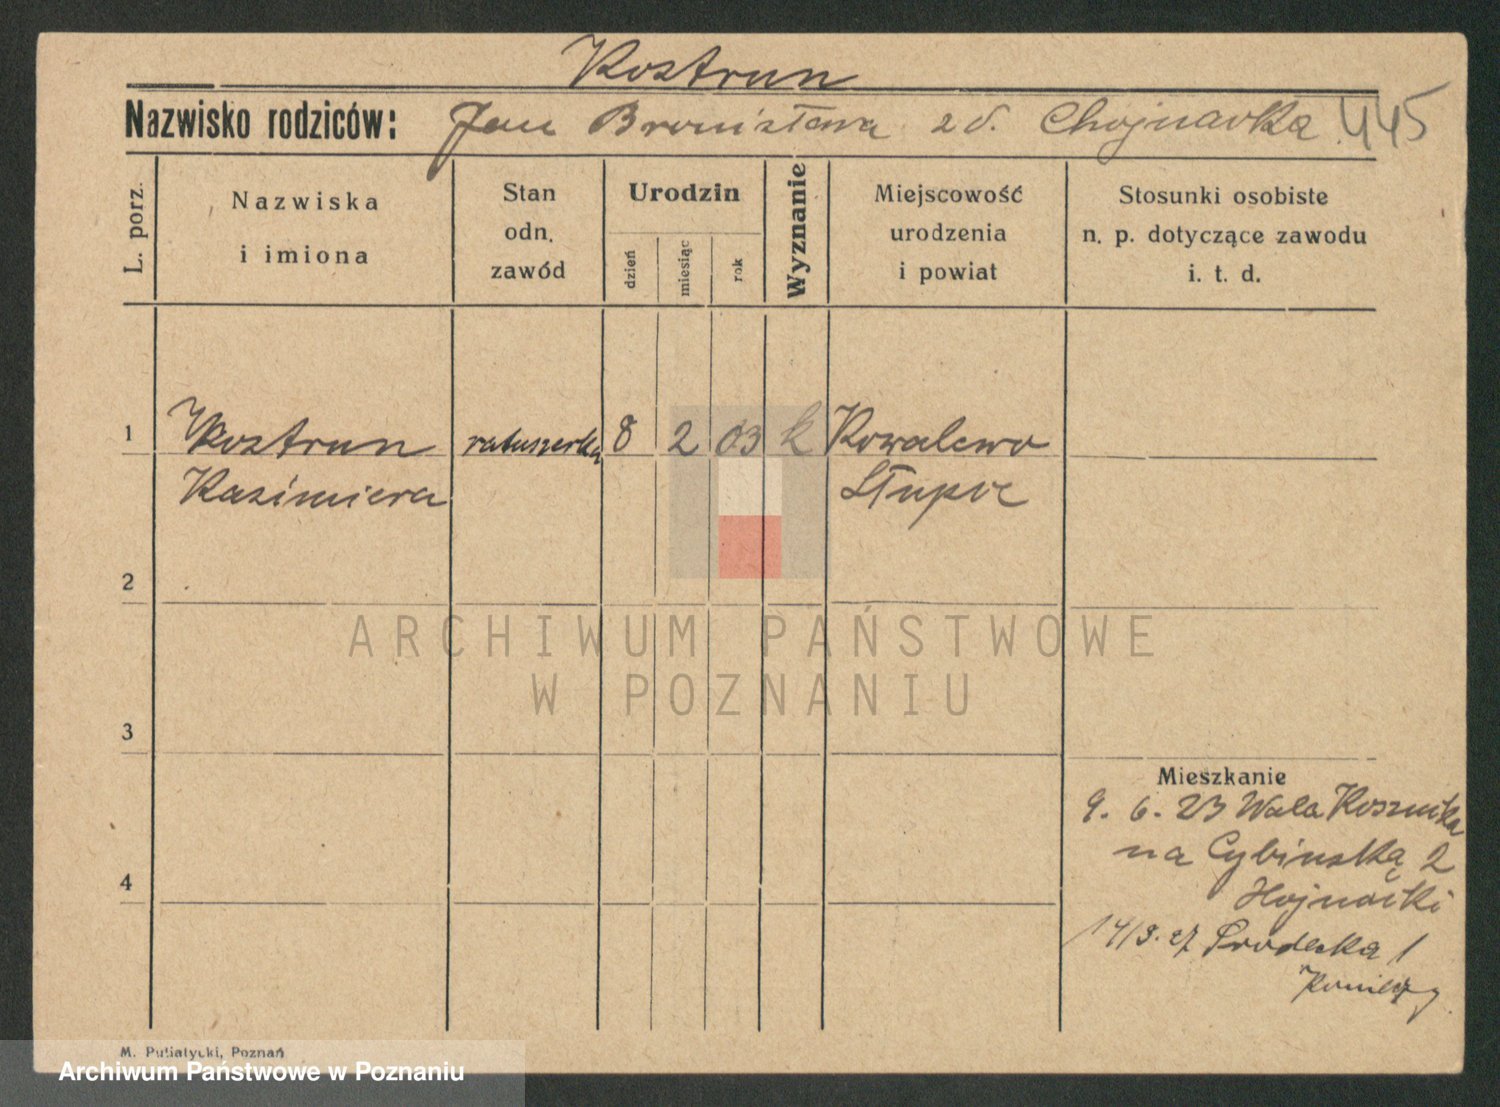 Kostrun
Nazwisko rodziców: Jan Bronisława z d. Chojnacka 445
L. porz.
Nazwiska
i imiona
Stan
odn.
zawód
Urodzin
dzień
miesiąc
rok
Wyznanie
Miejscowość
urodzenia
i powiat
Stosunki osobiste
n. p. dotyczące zawodu
i. t. d.
1 Kostrun 8 2 03 k Kowalewo
Kazimiera Słupce
2
ARCHIWUM PAŃSTWOWE
W POZNANIU
3
Mieszkanie
9. 6. 23 Wala
na Cybińską 2
Hojnacki
4
14/3. 27 1
M. Putiatycki, Poznań
Archiwum Państwowe w Poznaniu